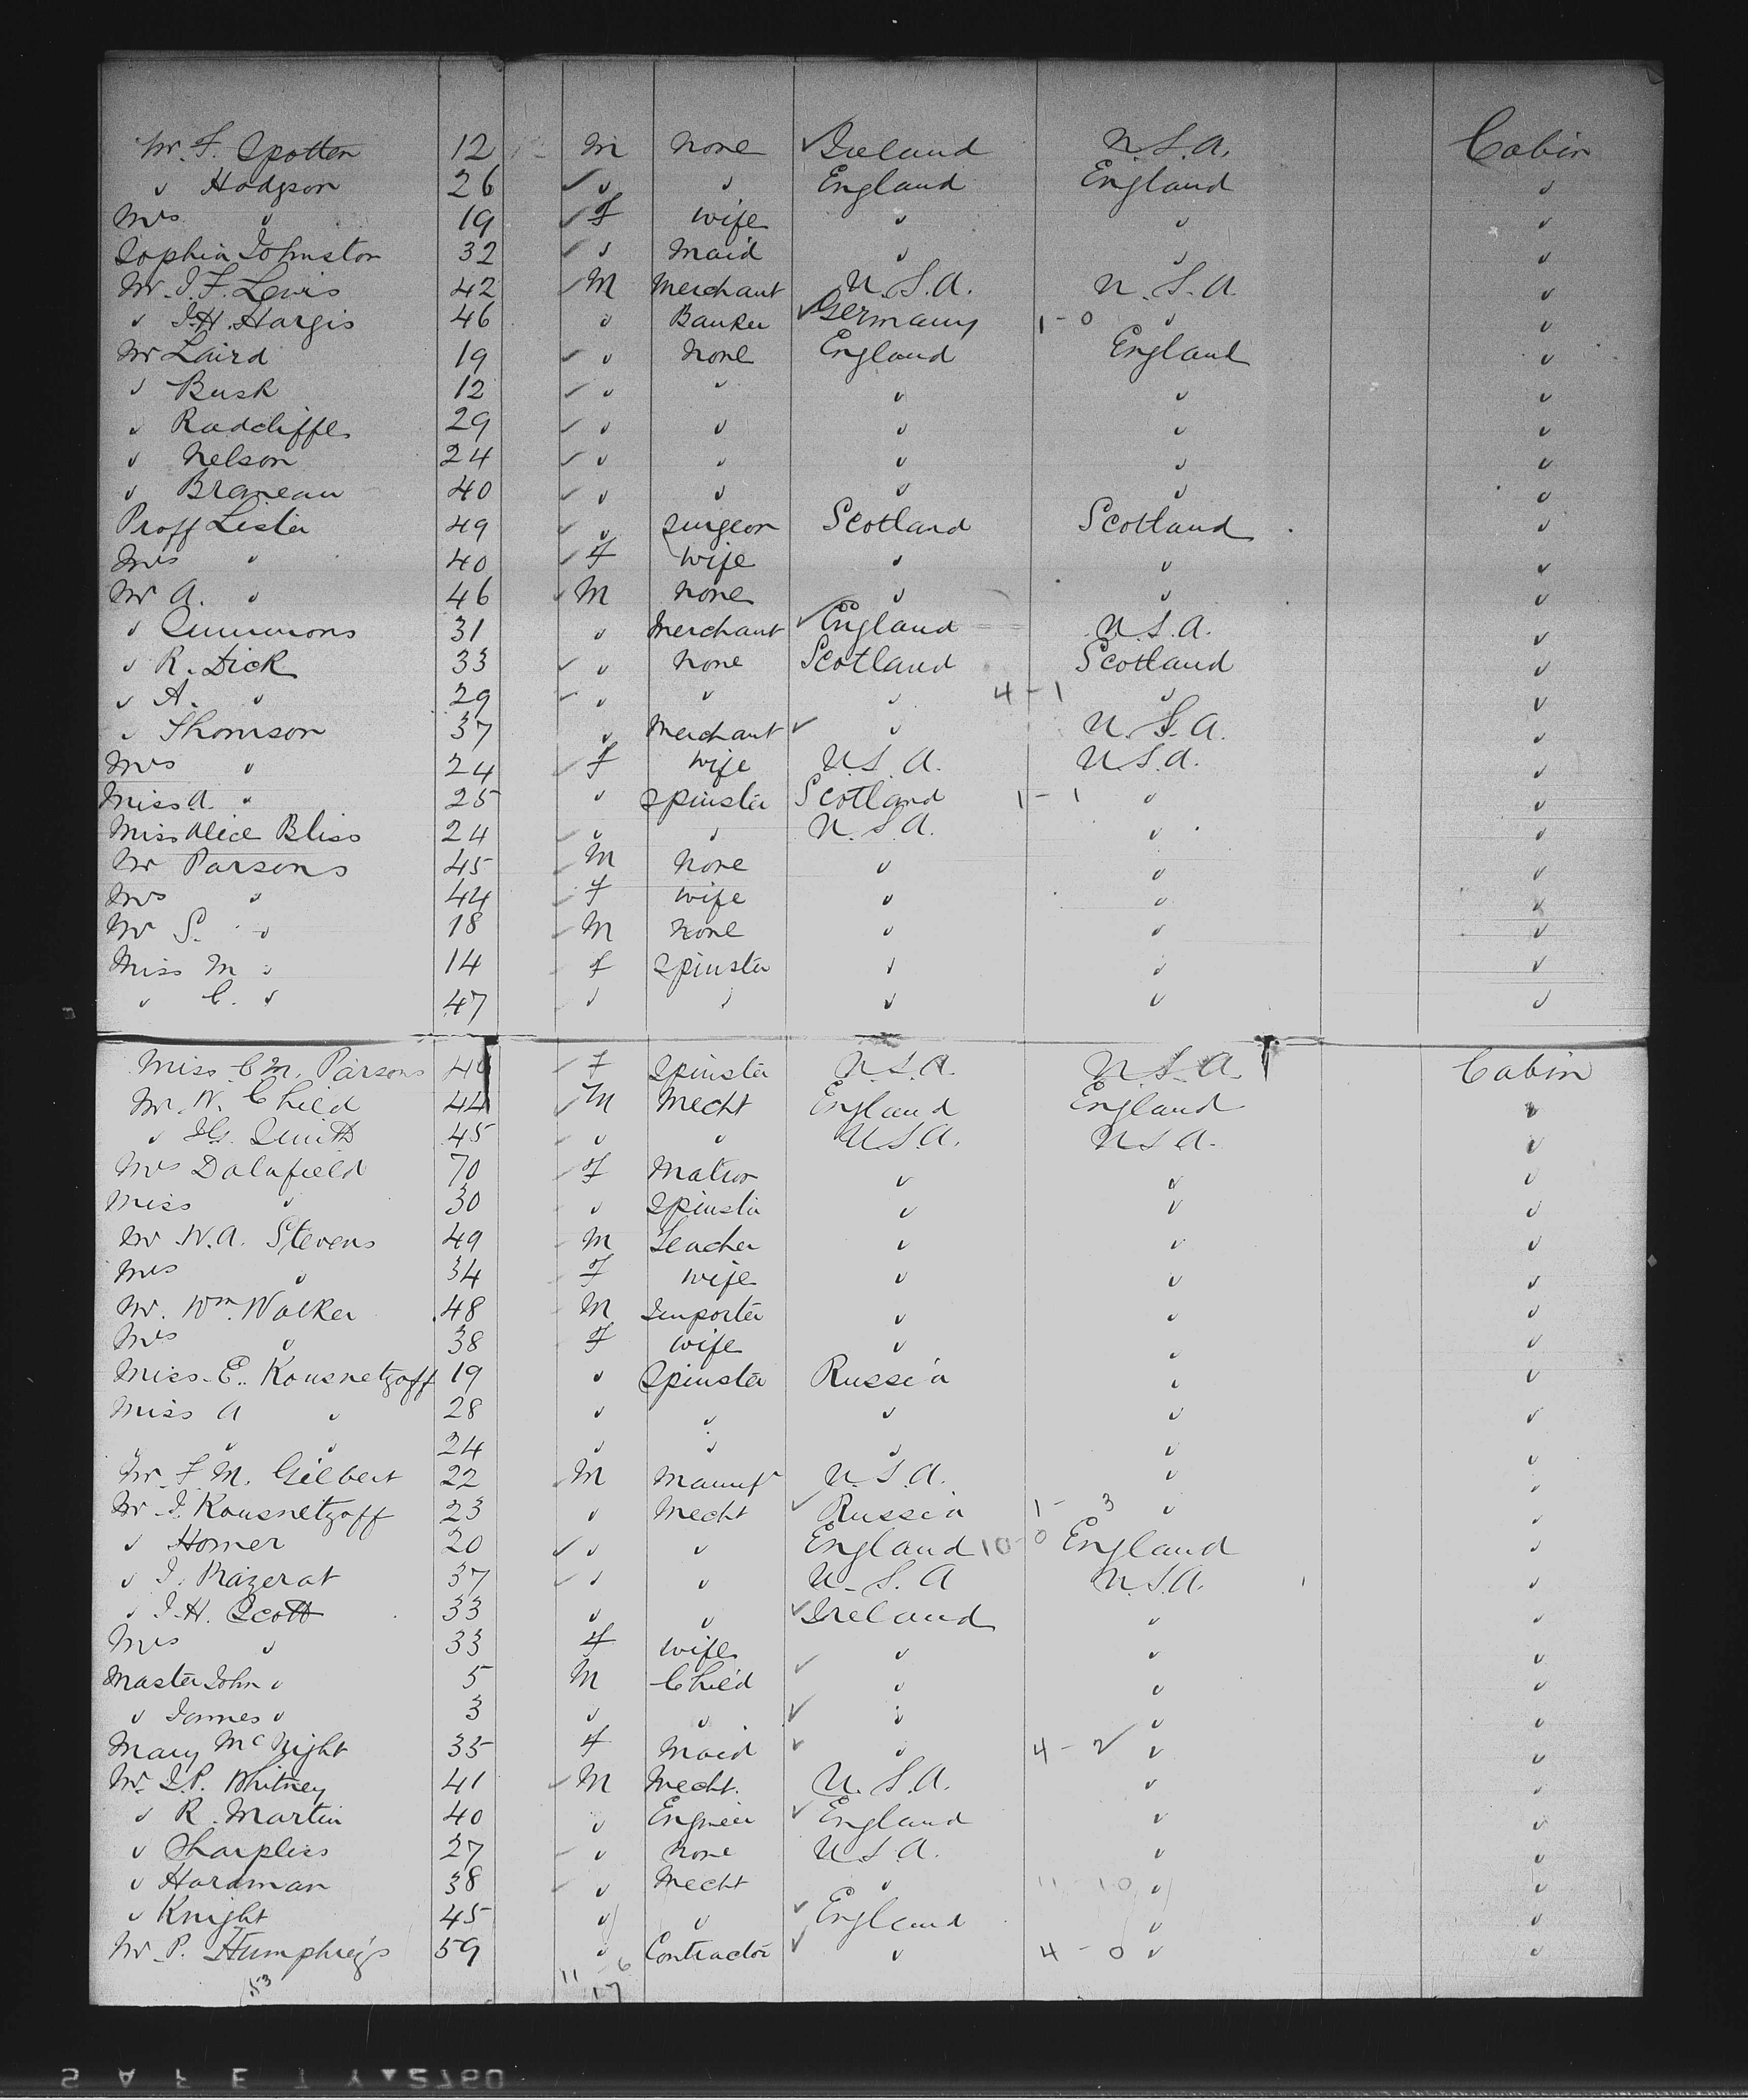 Mr. F. Spotten 12 M None ✓ Ireland U.S.A. Cabin
" Hodgson 26 ✓ " " England England "
Mrs " 19 ✓ F wife " " "
Sophia Johnston 32 ✓ " Maid " " "
Mr. J.F. Lewis 42 ✓ M Merchant U.S.A. U.S.A. "
" J.H. Hargis 46 " Banker ✓ Germany 1-0 " "
Mr Laird 19 ✓ " None England England "
" Bush 12 ✓ " " " " "
" Radcliffe 29 ✓ " " " " "
" Nelson 24 ✓ " " " " "
" 40 ✓ " " " " "
Proff Lister 49 ✓ " Surgeon Scotland Scotland "
Mrs " 40 ✓ F wife " " "
Mr A. " 46 ✓ M None " " "
" Simmons 31 " Merchant ✓ England U.S.A. "
" R. Dick 33 ✓ " None Scotland Scotland "
" A. " 29 ✓ " " " 4-1 " "
" Thomson 37 " Merchant ✓ " U.S.A. "
Mrs " 24 ✓ F Wife U.S.A. U.S.A. "
Miss A. " 25 " Spinster Scotland 1-1 " "
Miss Alice Bliss 24 ✓ " " U.S.A. " "
Mr Parsons 45 ✓ M None " " "
Mrs " 44 ✓ F wife " " "
Mr S. " 18 ✓ M None " " "
Miss M " 14 ✓ F Spinster " " "
" C. " 47 ✓ " " " " "
Miss C.M. Parsons ✓ F Spinster U.S.A. U.S.A. Cabin
Mr. W. Child 44 ✓ M Mecht England England "
" J.G. Smith 45 ✓ " " U.S.A. U.S.A. "
Mrs Dalafield 70 ✓ F Matron " " "
Miss " 30 ✓ " Spinster " " "
Mr W.A. Stevens 49 ✓ M Teacher " " "
Mrs " 34 ✓ F wife " " "
Mr. Wm. Walker 48 ✓ M Importer " " "
Mrs " 38 ✓ F wife " " "
Miss E. Kousnetzoff 19 " Spinster Russia " "
Miss A " 28 " " " " "
" " " 24 " " " " "
Mr F.M. Gilbert 22 ✓ M Manufr U.S.A. " "
Mr J. Kousnetzoff 23 " Mecht ✓ Russia 1-3 " "
" Homer 20 ✓ " " England 10-0 England "
" J. Razerat 37 ✓ " " U.S.A U.S.A. "
" J.H. Scott 33 " " ✓ Ireland " "
Mrs " 33 F wife " " "
Master John " 5 M Child ✓ " " "
" James " 3 " " ✓ " " "
Mary McNight 35 F Maid ✓ " 4-2 " "
Mr. J.P. Whitney 41 ✓ M Mecht. U.S.A. " "
" R. Martin 40 " Engineer ✓ England " "
" Sharpless 27 ✓ " None U.S.A. " "
" Hardman 38 ✓ " Mecht " 11-10 " "
" Knight 45 " " ✓ England " "
Mr P. Humphreys 59 " Contractor ✓ " 4-0 " "
53 11-6
17
SAFETY▲2760